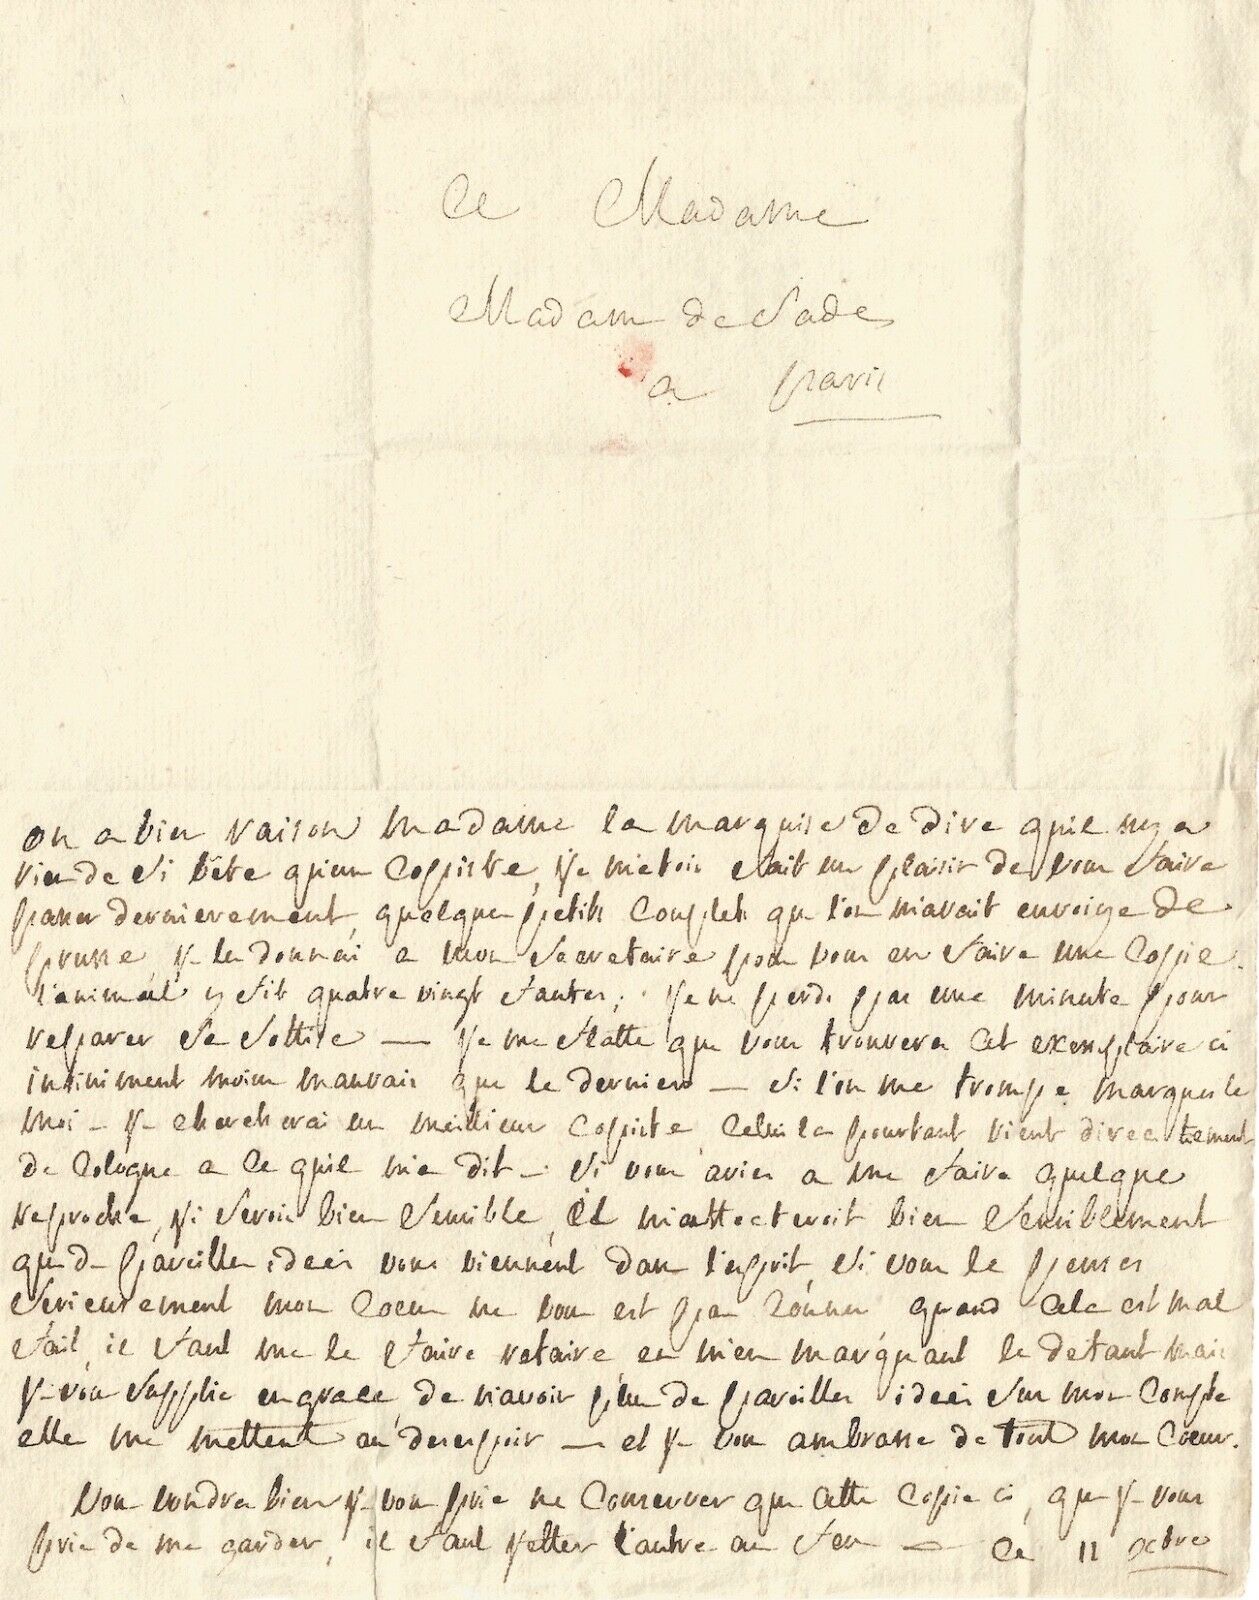 A Madame
Madame de Sade
a paris
on a bien raison madame la marquise de dire quil ny a
rien de si bête quun copiste, je métois fait un plaisir de vous faire
passer dernierement quelques petits couplets que l'on m'avait envoiye de
prusse, je les donnai a mon secretaire pour vous en faire une copie.
l'animal y fit quatre vingt fautes; je ne perds pas une minute pour
reparer sa sottise — je me flatte que vous trouveres cet exemplaire ci
infiniment moins mauvais que le dernier — si l'on me trompe marques le
moi — je chercherai un meillieur copiste celui la pourtant vient directement
de Cologne a ce quil m'a dit — si vous avies a me faire quelque
reproche, j'i serois bien sensible, il m'affecteroit bien sensiblement
que de pareilles idees vous viennent dans l'esprit, si vous le penses
serieusement mon coeur ne vous est pas connu quand cela est mal
fait, il faut me le faire refaire en m'en marquant le defaut mais
je vous supplie en grace de n'avoir plus de pareilles idees sur mon compte
elles me mettent au desespoir — et je vous ambrasse de tout mon coeur.
Vous voudres bien je vous prie ne conserver que cette copie ci, que je vous
prie de me garder, il faut jetter l'autre au feu — ce 11 xbre